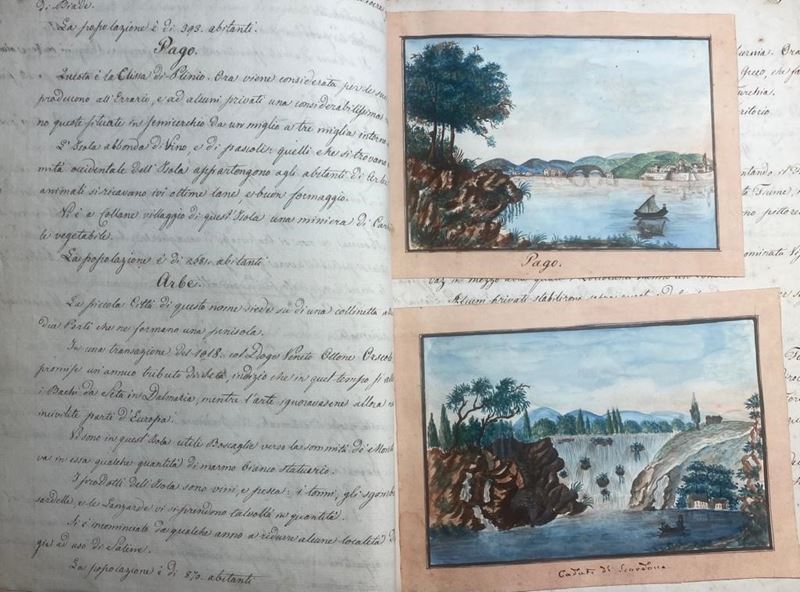 di Biade.
La popolazione è di 393. abitanti.
Pago.
Questa è la Cissa di Plinio. Ora viene considerata per le sue
producono all'Errario, e ad alcuni privati una considerabilissima
no queste situate in semicerchio da un miglio a tre miglia intorno
L'Isola abbonda di Vino, e di pascoli: quelli che si trovano
mità occidentale dell'Isola appartengono agli abitanti di Arbe
animali si ricavano ivi ottime lane e buon formaggio.
Vi è a Collane villaggio di quest'Isola una miniera di Car
le vegetabile.
La popolazione è di abitanti
Arbe.
La piccola Città di questo nome siede su di una collinetta
due Porti che ne formano una penisola.
In una transazione del 1018. col Doge Veneto Ottone Orseolo
promise un'annuo tributo di seta, indizio che in quel tempo si
i Bachi da Seta in Dalmazia, mentre l'arte ignoravasene allora
incivilite parti d'Europa.
Vi sono in quest'Isola utili Boscaglie verso la sommità de'
va in essa qualche quantità di marmo bianco statuario.
I prodotti dell'Isola sono vini, e pesca: i tonni, gli sgombri
sardelle, e le Lanzarde vi si prendono talvolta in quantità.
Si è incominciato da qualche anno a ridurre alcune località
già ad uso di Saline.
La popolazione è di 870. abitanti
Pago.
Alcuni privati stabilirono
Caduta di Scardona